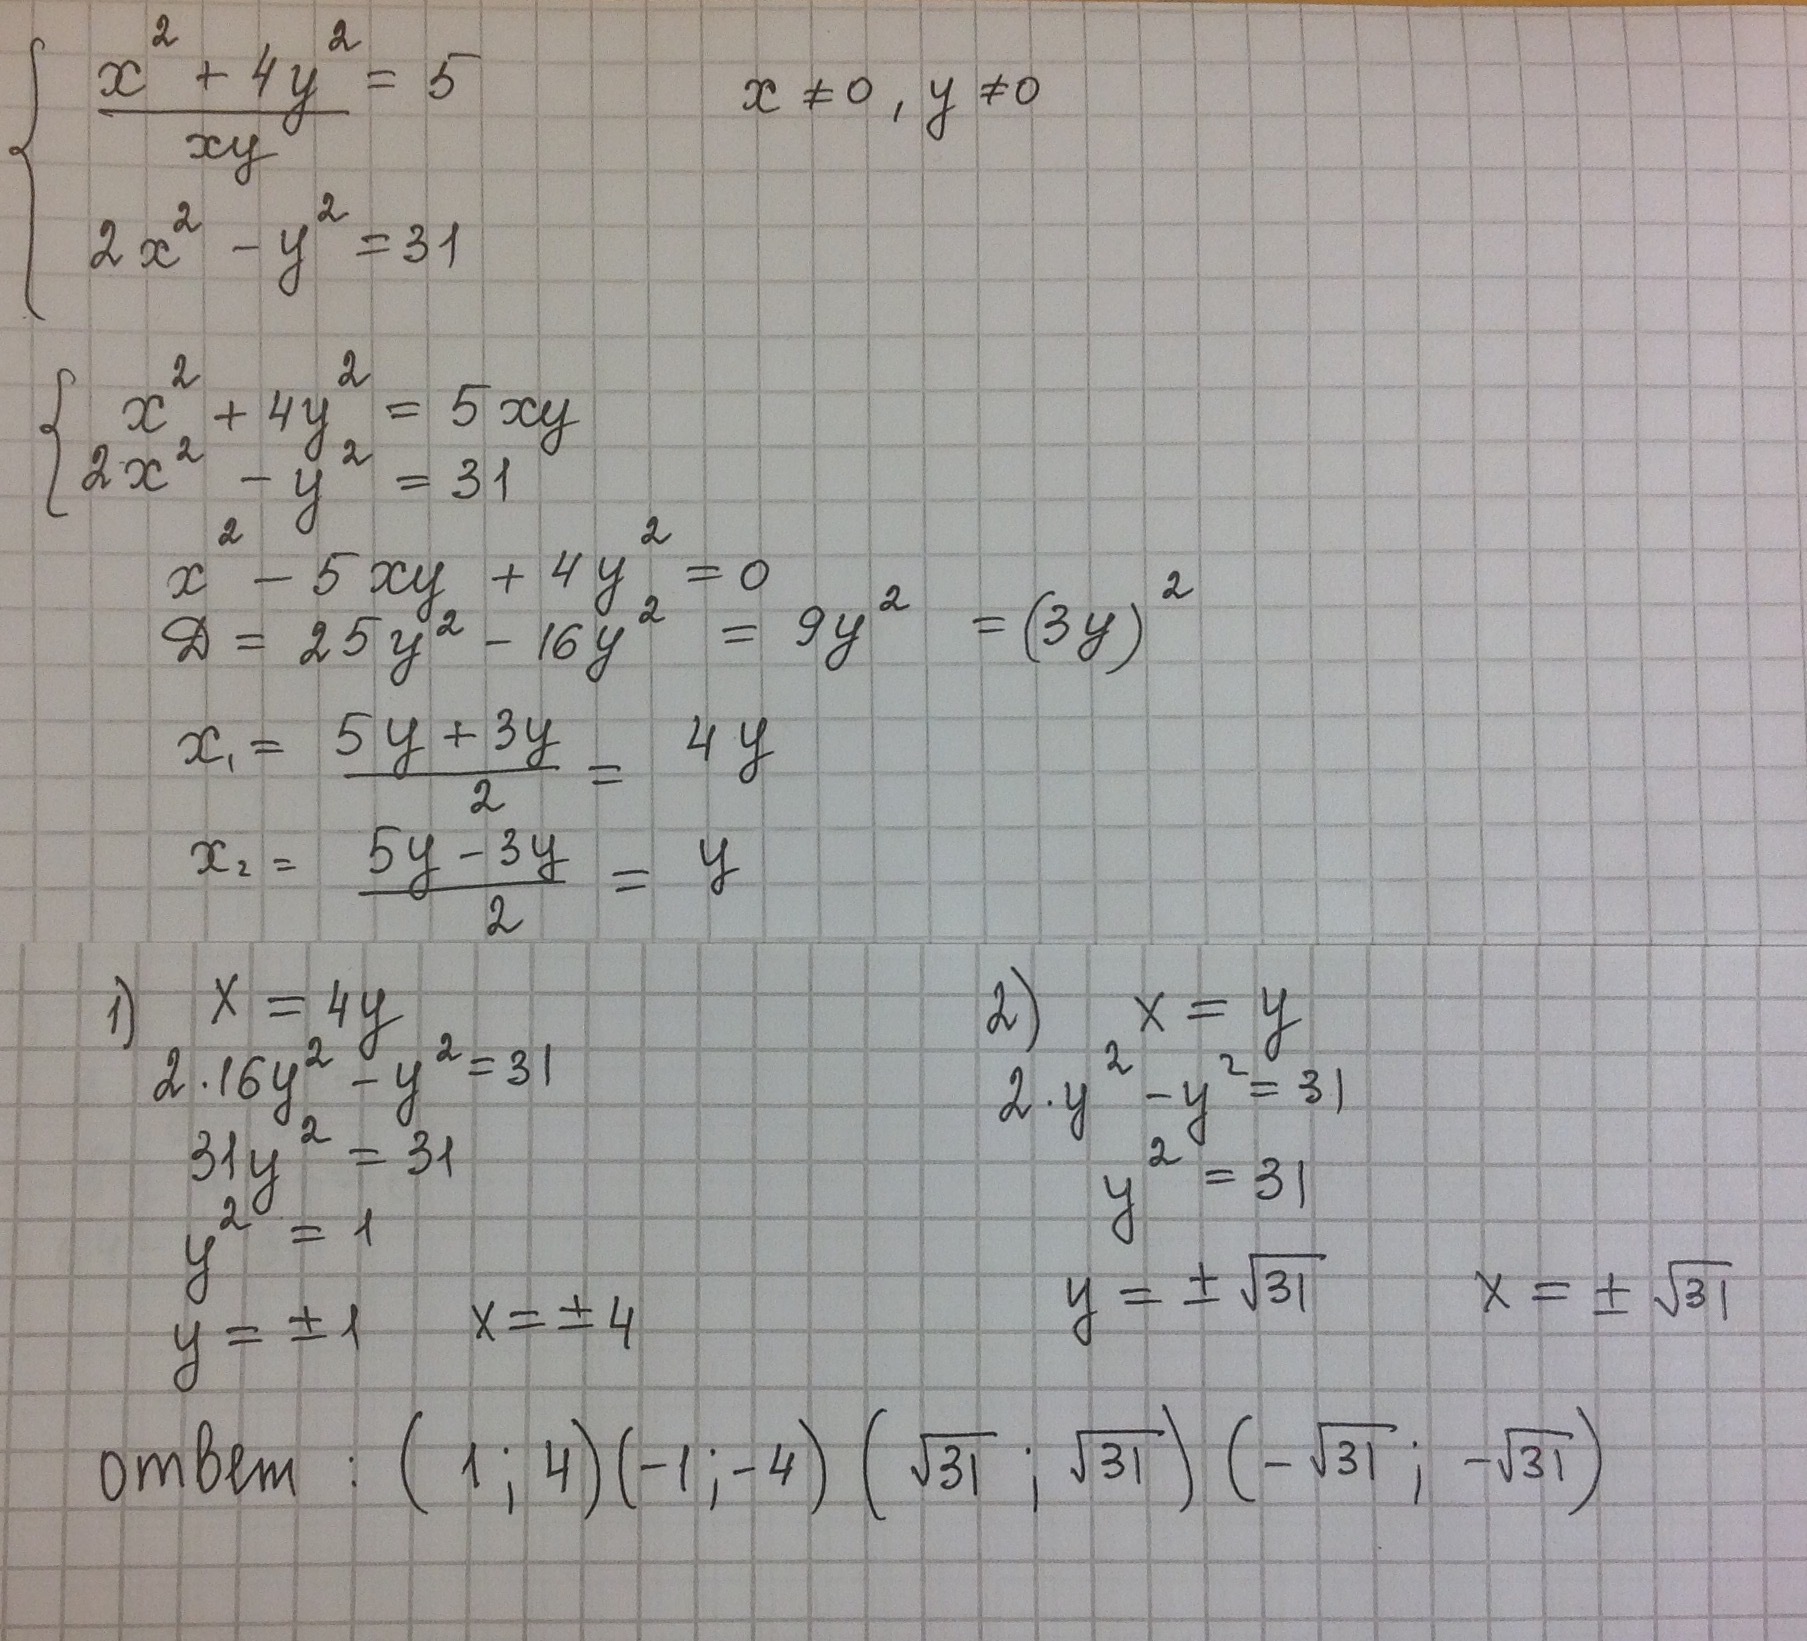 x² + 4y² / xy = 5    x ≠ 0, y ≠ 0
2x² - y² = 31
x² + 4y² = 5xy
2x² - y² = 31
x² - 5xy + 4y² = 0
D = 25y² - 16y² = 9y² = (3y)²
x₁ = 5y + 3y / 2 = 4y
x₂ = 5y - 3y / 2 = y
1) x = 4y
2·16y² - y² = 31
31y² = 31
y² = 1
y = ±1    x = ±4
2) x = y
2·y² - y² = 31
y² = 31
y = ±√31    x = ±√31
ответ : (1; 4)(-1; -4) (√31; √31) (-√31; -√31)